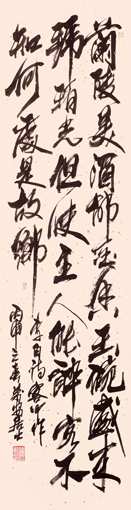 蘭陵美酒郁金香玉碗盛来
琥珀光但使主人能醉客不
知何處是故鄉
李白詩客中作
丙申